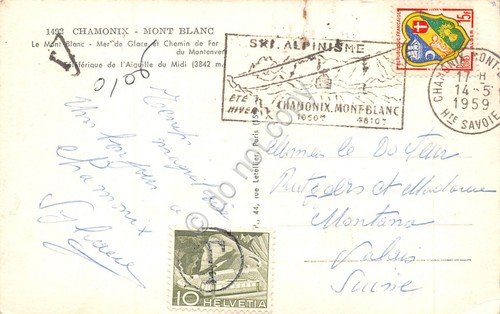 1492 CHAMONIX - MONT BLANC
Le Mont Blanc - Mer de Glace et Chemin de Fer
du Montenvers
Téléférique de l'Aiguille du Midi (3842 m.)
T
0/10
Temps
magnifique
Un bonjour de
Chamonix
Sylviane
SKI. ALPINISME
ÉTÉ
HIVER
CHAMONIX.MONT-BLANC
1050m 4810m
15F
CHAMONIX MONT-
17 H
14-5
1959
Hte SAVOIE
44, rue Letellier, Paris
Monsieur le Docteur
Rutgers et Madame
Montana
Valais
Suisse
T
10 HELVETIA
do not copy